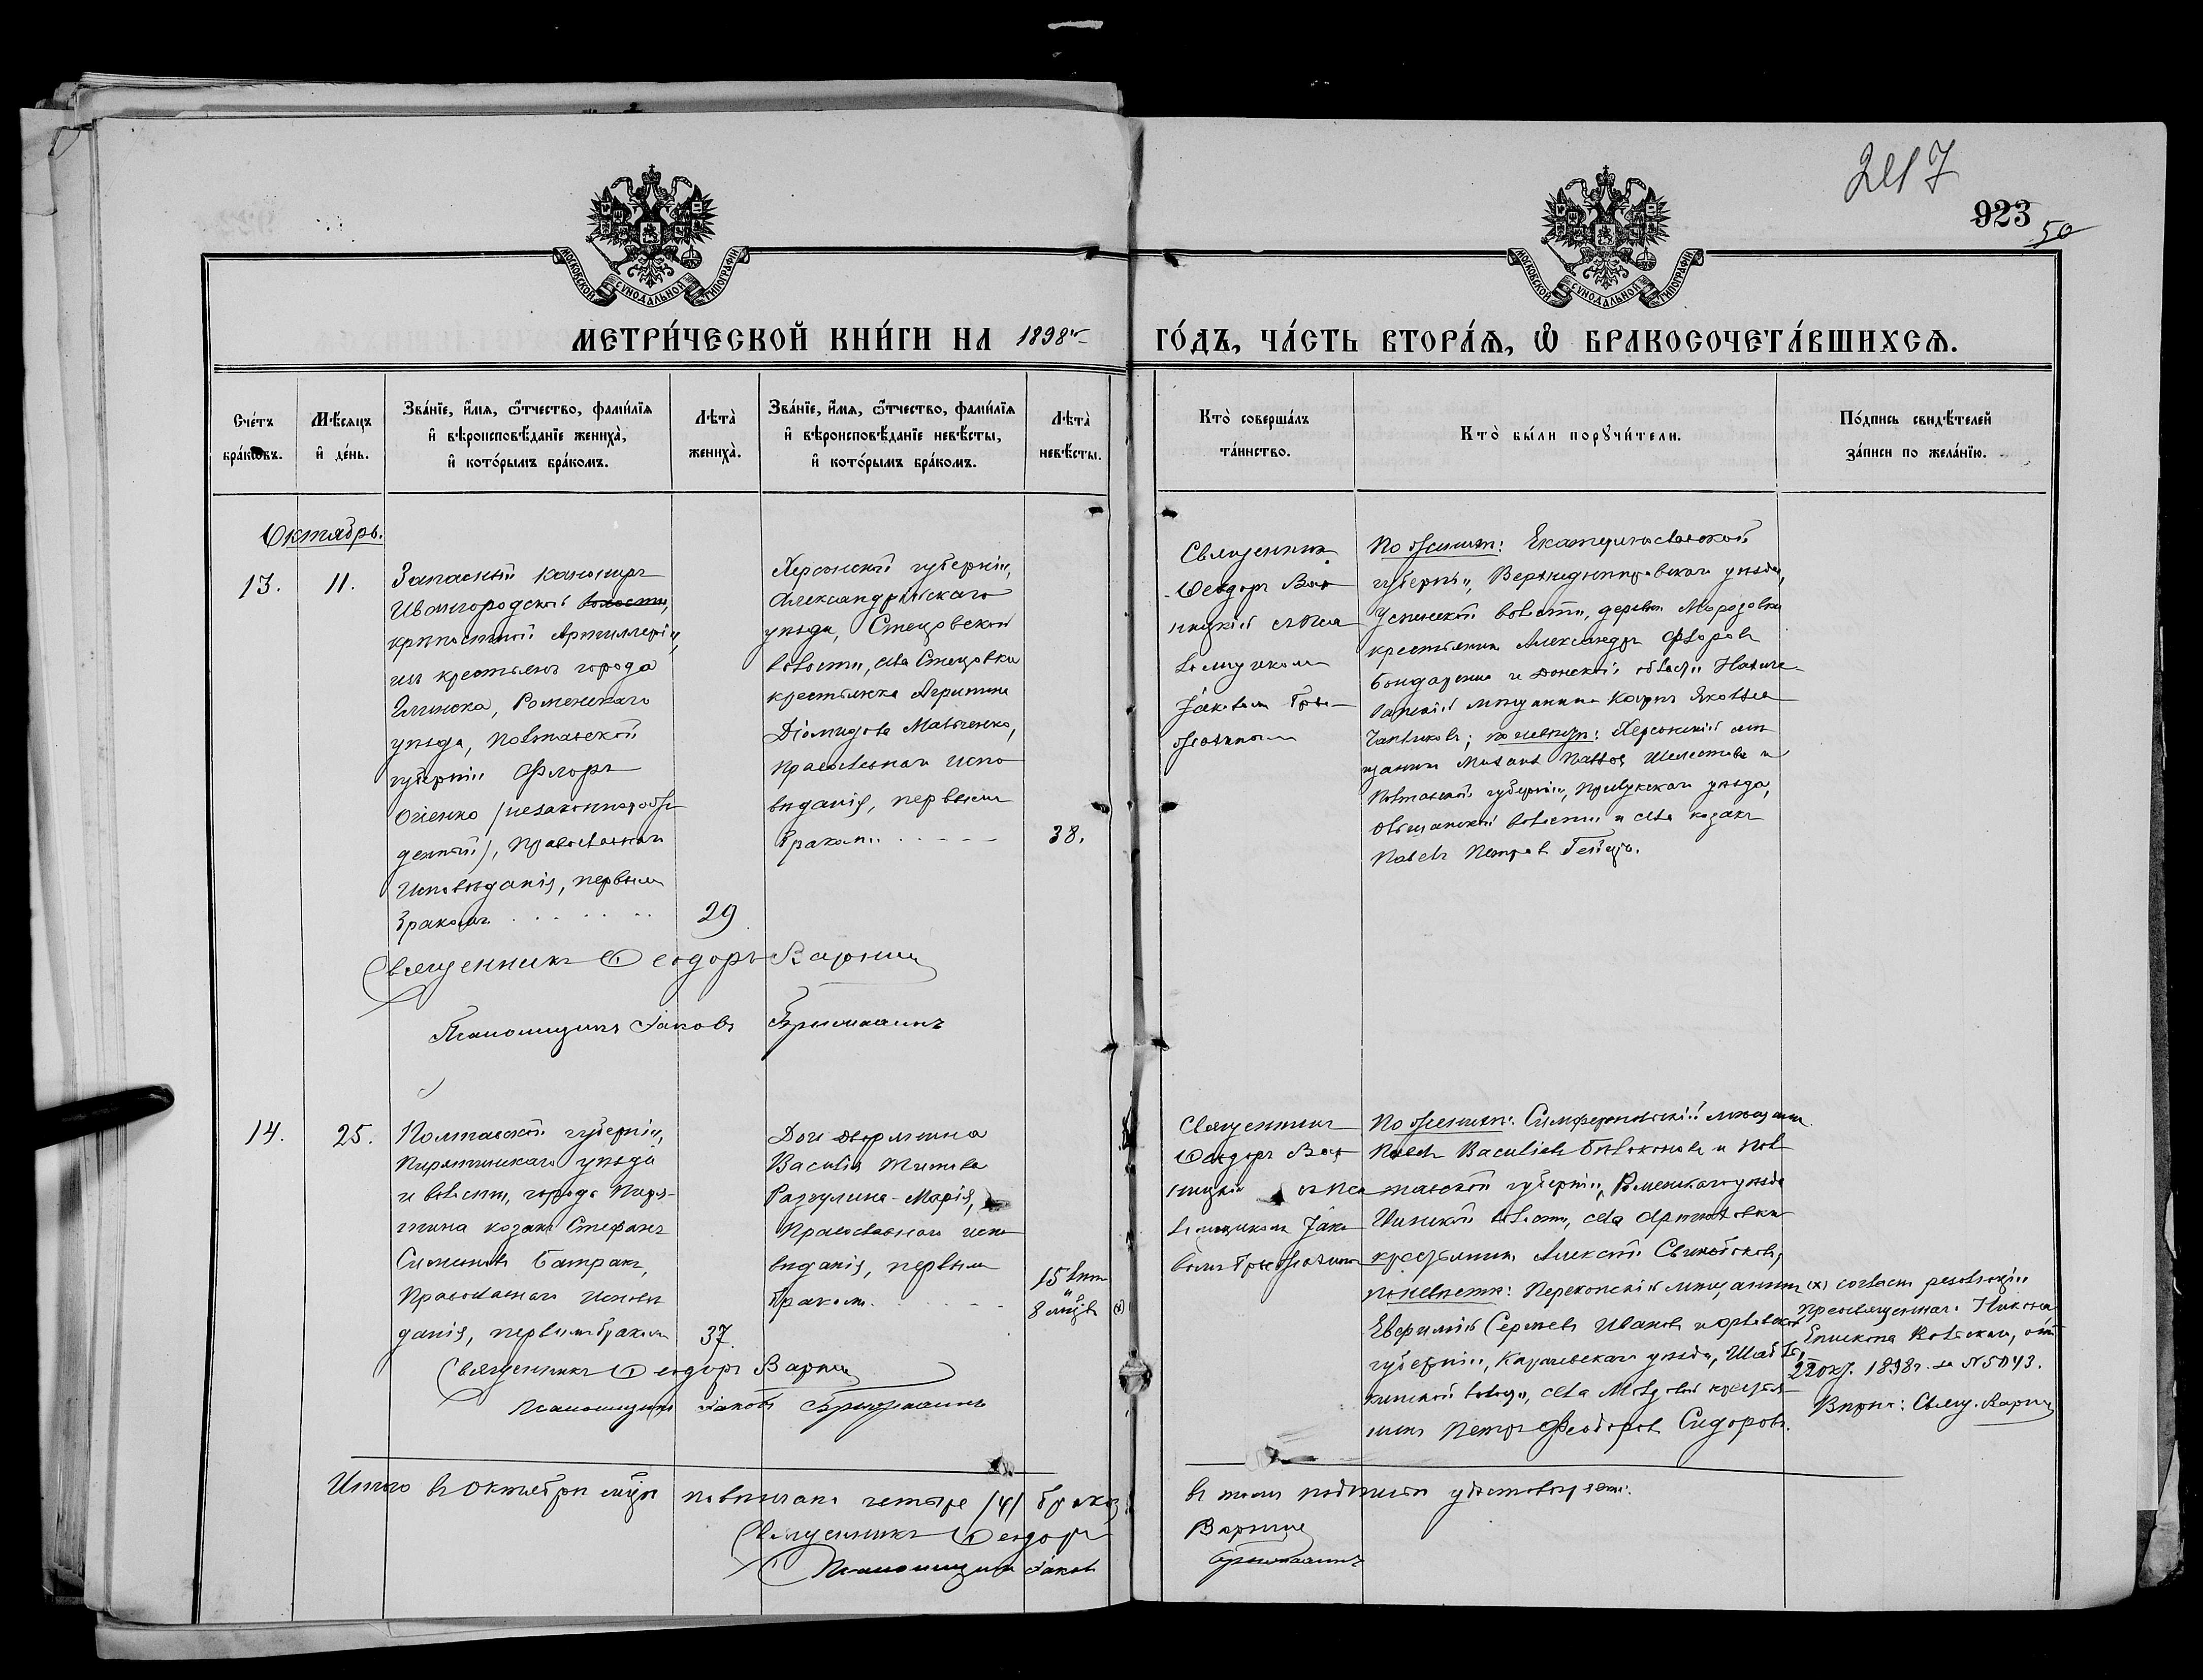 217
923
50
МОСКОВСКОЙ СУНОДАЛЬНОЙ ТИПОГРАФІИ
МОСКОВСКОЙ СУНОДАЛЬНОЙ ТИПОГРАФІИ
МЕТРИ́ЧЕСКОЙ КНИ́ГИ НА 1898й
ГО́ДЪ, ЧА́СТЬ ВТОРА́Ѧ, Ѽ БРАКОСОЧЕТА́ВШИХСѦ.
Сче́тъ бра́кѡвъ.
Мѣ́сяцъ и҆ де́нь.
Зва́нїе, и҆́мѧ, ѻ҆́тчество, фами́лїѧ и҆ вѣроисповѣ́данїе жениха̀, и҆ кото́рымъ бра́комъ.
Лѣта̀ жениха̀.
Зва́нїе, и҆́мѧ, ѻ҆́тчество, фами́лїѧ и҆ вѣроисповѣ́данїе невѣ́сты, и҆ кото́рымъ бра́комъ.
Лѣта̀ невѣ́сты.
Кто̀ соверша́лъ та́инство.
Кто̀ бы́ли порꙋчи́тели.
По́дпись свидѣ́телей за́писи по жела́нїю.
Октябрь.
13.
11.
Запасный канониръ
Ивангородской волости,
крѣпостной Артиллеріи,
изъ крестьянъ города
Глинска, Роменскаго
уѣзда, Полтавской
губерніи Флоръ
Огіенко (незаконнорож
денный), Православнаго
Исповѣданія, первымъ
бракомъ
29
Херсонской губерніи,
Александрійскаго
уѣзда, Стецовской
волости, села Стецовки
крестьянка Агрипина
Діомидова Матвіенко,
православнаго испо
вѣданія, первымъ
бракомъ
38.
Священникъ
Ѳеодоръ Вар
ницкій съ Пса
ломщикомъ
Іаковомъ
По женихѣ: Екатеринославской
губерніи, Верхнеднѣпровскаго уѣзда,
Успенской волости, деревни Морозовки
крестьянинъ Александръ Флоровъ
Бондаренко и Донской области
мѣщанинъ Карпъ Яковлевъ
Чапликовъ; по невѣстѣ: Херсонскій мѣ
щанинъ Павловъ Шелестовъ и
Полтавской губерніи, Прилукскаго уѣзда,
волости и села козакъ
Павелъ Петровъ
Священникъ Ѳеодоръ Варницкій
Псаломщикъ Іаковъ
14.
25.
Полтавской губерніи,
Пирятинскаго уѣзда
и волости, города Пиря-
тина козакъ Стефанъ
Симеоновъ Батракъ,
Православнаго Исповѣ
данія, первымъ бракомъ
37.
Дочь дворянина
Василія Титова
Разгулина - Марія,
Православнаго испо
вѣданія, первымъ
бракомъ
15 лѣтъ
8 мцвъ (х)
Священникъ
Ѳеодоръ Вар
ницкій съ Пса
ломщикомъ Іако
вомъ
По женихѣ: Симферопольскій мѣщанинъ
Павелъ Васильевъ Бѣлоконовъ и Пол
тавской губерніи, Роменскаго уѣзда
волости, села
крестьянинъ Алексѣй
по невѣстѣ: Перекопскій мѣщанинъ
Евфимій Сергѣевъ Ивановъ и Орловской
губерніи, Карачевскаго уѣзда,
волости, села крестья-
нинъ Петръ Феодоровъ Сидоровъ.
(х) согласно резолюціи
Преосвященнаго Никона
Епископа, отъ
22 окт. 1898г. за № 5043.
Вѣрно: Свящ. Варниц
Священникъ Ѳеодоръ Варниц
Псаломщикъ Іаковъ
Итого въ Октябрѣ мцѣ повѣнчано четыре (4) брака,
въ томъ подписомъ удостовѣряемъ:
Священникъ Ѳеодоръ Варницкій
Псаломщикъ Іаковъ